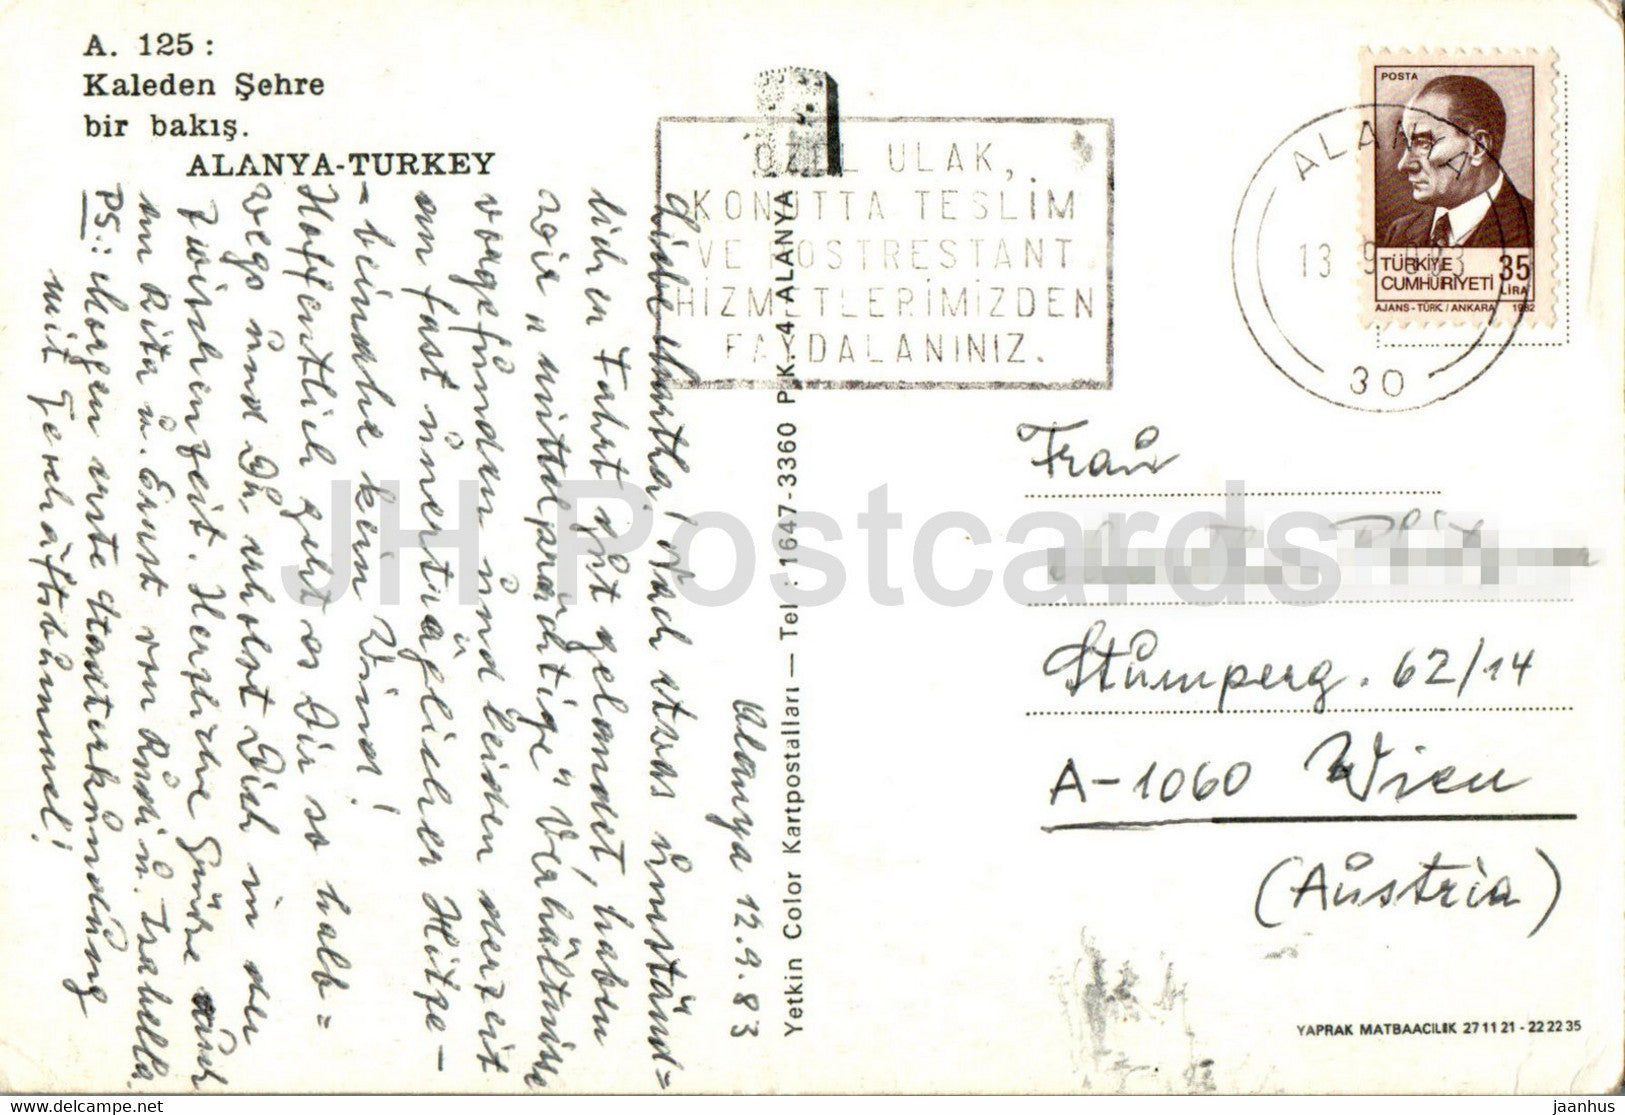 A. 125 :
Kaleden Şehre
bir bakış.
ALANYA-TURKEY
Alanya 12.9.83
Liebe Martha, Nach etwas umständ=
licher Fahrt gut gelandet, haben
wir "mittelprächtige" Verhältnisse
vorgefunden und leiden derzeit
an fast unerträglicher Hitze -
- beinahe kein Wind!
Hoffentlich geht es Dir so halb=
wegs und Du erholst Dich in der
Zwischenzeit. Herzliche Grüße auch
an Rita u. Ernst von Rudi u. Isabella.
PS.: Morgen erste Stadterkundung
mit Geschäftsbummel!
Yetkin Color Kartpostalları — Tel : 1647-3360 P.K.4 ALANYA
ÖZEL ULAK,
KONUTTA TESLİM
VE POSTRESTANT
HİZMETLERİMİZDEN
FAYDALANINIZ.
ALANYA
13 9 1983
30
POSTA
TÜRKİYE
CUMHURİYETİ 35
LİRA
AJANS-TÜRK / ANKARA 1982
Frau
Stumperg. 62/14
A-1060 Wien
(Austria)
YAPRAK MATBAACILIK 27 11 21 - 22 22 35
JH Postcards
delcampe.net
jaanhus